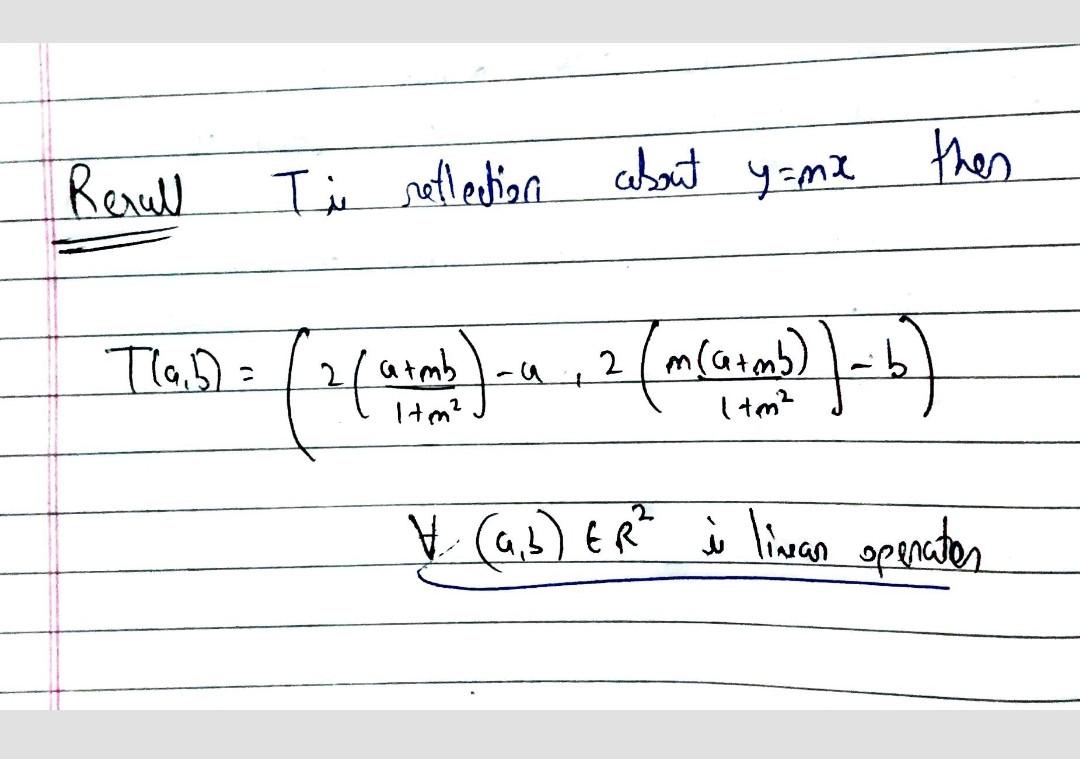 Recall T is reflection about y=mx then
T(a,b) = ( 2( a+mb / 1+m² ) - a , 2( m(a+mb) / 1+m² ) - b )
∀ (a,b) ∈ R² is linear operator